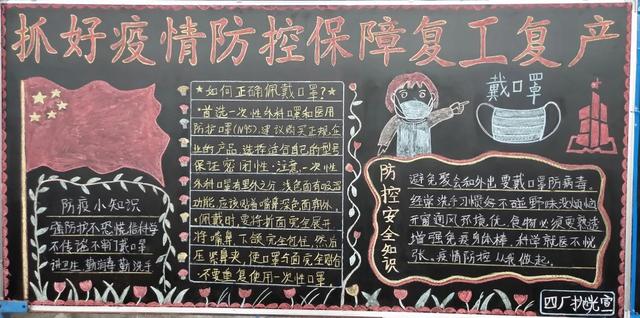 抓好疫情防控保障复工复产
防疫小知识
强防护不恐慌信科学
不传谣不朝门戴口罩
讲卫生勤消毒勤洗手
*如何正确佩戴口罩?
·首选一次性外科口罩和医用
防护口罩(N95)建议购买正规企
业的产品,选择适合自己的型号
保证密闭性·注意一次性
外科口罩有里外之分,浅色面有吸湿
功能,应该贴着嘴鼻深色面朝外.
·佩戴时要将折面完全展开,
将嘴鼻、下颌完全包住,然后
压紧鼻夹,使口罩与面完全贴合
·不要重复使用一次性口罩.
戴口罩
防控安全知识
避免聚会和外出要戴口罩防病毒。
经常洗手习惯好不碰野味少烦恼
开窗通风环境优,食物必须要熟透
增强免疫身体棒,科学就医不慌
张、疫情防控从我做起。
四厂抛光宣